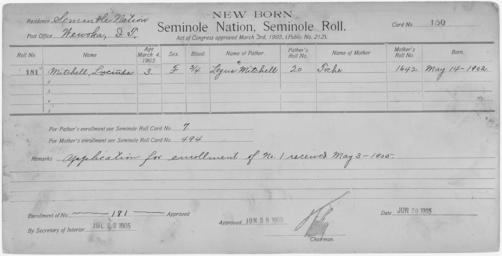 NEW BORN.
Residence Seminole Nation
Seminole Nation, Seminole Roll.
Card No. 150
Post Office Wewoka, I.T.
Act of Congress approved March 3rd, 1905, (Public No. 212).
Roll No. Name Age March 4, 1905 Sex Blood Name of Father Father's Roll No. Name of Mother Mother's Roll No. Born.
181 Mitchell, Lucinda 3 F 3/4 Mitchell 20 1642 May 14-1902
2
3
4
For Father's enrollment see Seminole Roll Card No. 7
For Mother's enrollment see Seminole Roll Card No. 494
Remarks Application for enrollment of No. 1 received May 3-1905.
Enrollment of No. 181 Approved
By Secretary of Interior 1905
Approved JUN 1905
Chairman.
Date JUN 1905